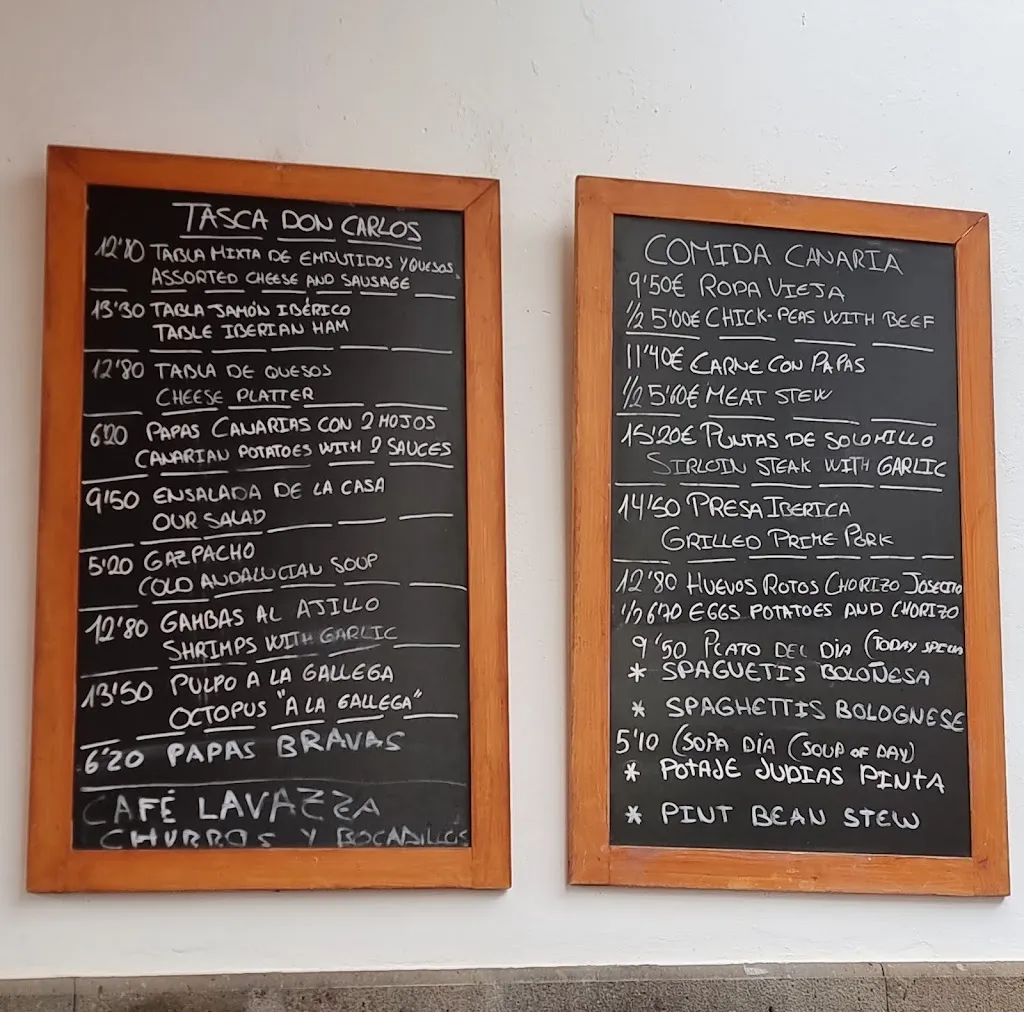 TASCA DON CARLOS
12'80 TABLA MIXTA DE EMBUTIDOS Y QUESOS
ASSORTED CHEESE AND SAUSAGE
13'30 TABLA JAMÓN IBÉRICO
TABLE IBERIAN HAM
12'80 TABLA DE QUESOS
CHEESE PLATTER
6'20 PAPAS CANARIAS CON 2 MOJOS
CANARIAN POTATOES WITH 2 SAUCES
9'50 ENSALADA DE LA CASA
OUR SALAD
5'20 GAZPACHO
COLD ANDALUCIAN SOUP
12'80 GAMBAS AL AJILLO
SHRIMPS WITH GARLIC
13'50 PULPO A LA GALLEGA
OCTOPUS "A LA GALLEGA"
6'20 PAPAS BRAVAS
CAFÉ LAVAZZA
CHURROS Y BOCADILLOS
COMIDA CANARIA
9'50€ ROPA VIEJA
1/2 5'00€ CHICK-PEAS WITH BEEF
11'40€ CARNE CON PAPAS
1/2 5'60€ MEAT STEW
15'20€ PUNTAS DE SOLOMILLO
SIRLOIN STEAK WITH GARLIC
14'50 PRESA IBERICA
GRILLED PRIME PORK
12'80 HUEVOS ROTOS CHORIZO JOSELITO
1/2 6'70 EGGS POTATOES AND CHORIZO
9'50 PLATO DEL DÍA (TODAY
* SPAGUETIS BOLOÑESA
* SPAGHETTIS BOLOGNESE
5'10 (SOPA DÍA (SOUP OF DAY)
* POTAJE JUDIAS PINTA
* PINT BEAN STEW